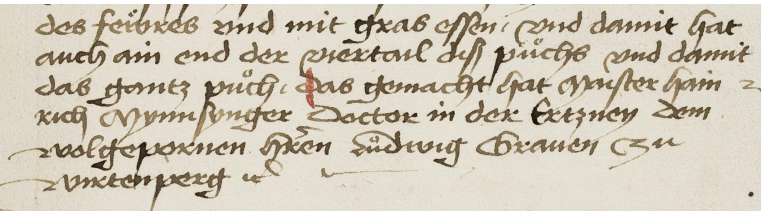 des feibres vnd mit gras essen, vnd damit hat
auch ain end der viertail diß půchs vnd damit
das gantz půch, das gemacht hat Maister hain
rich Mynnsynger Doctor in der Ertzney dem
wolgepornen Hren Lůdwig Grauen zu
wirtenperg ꝛc